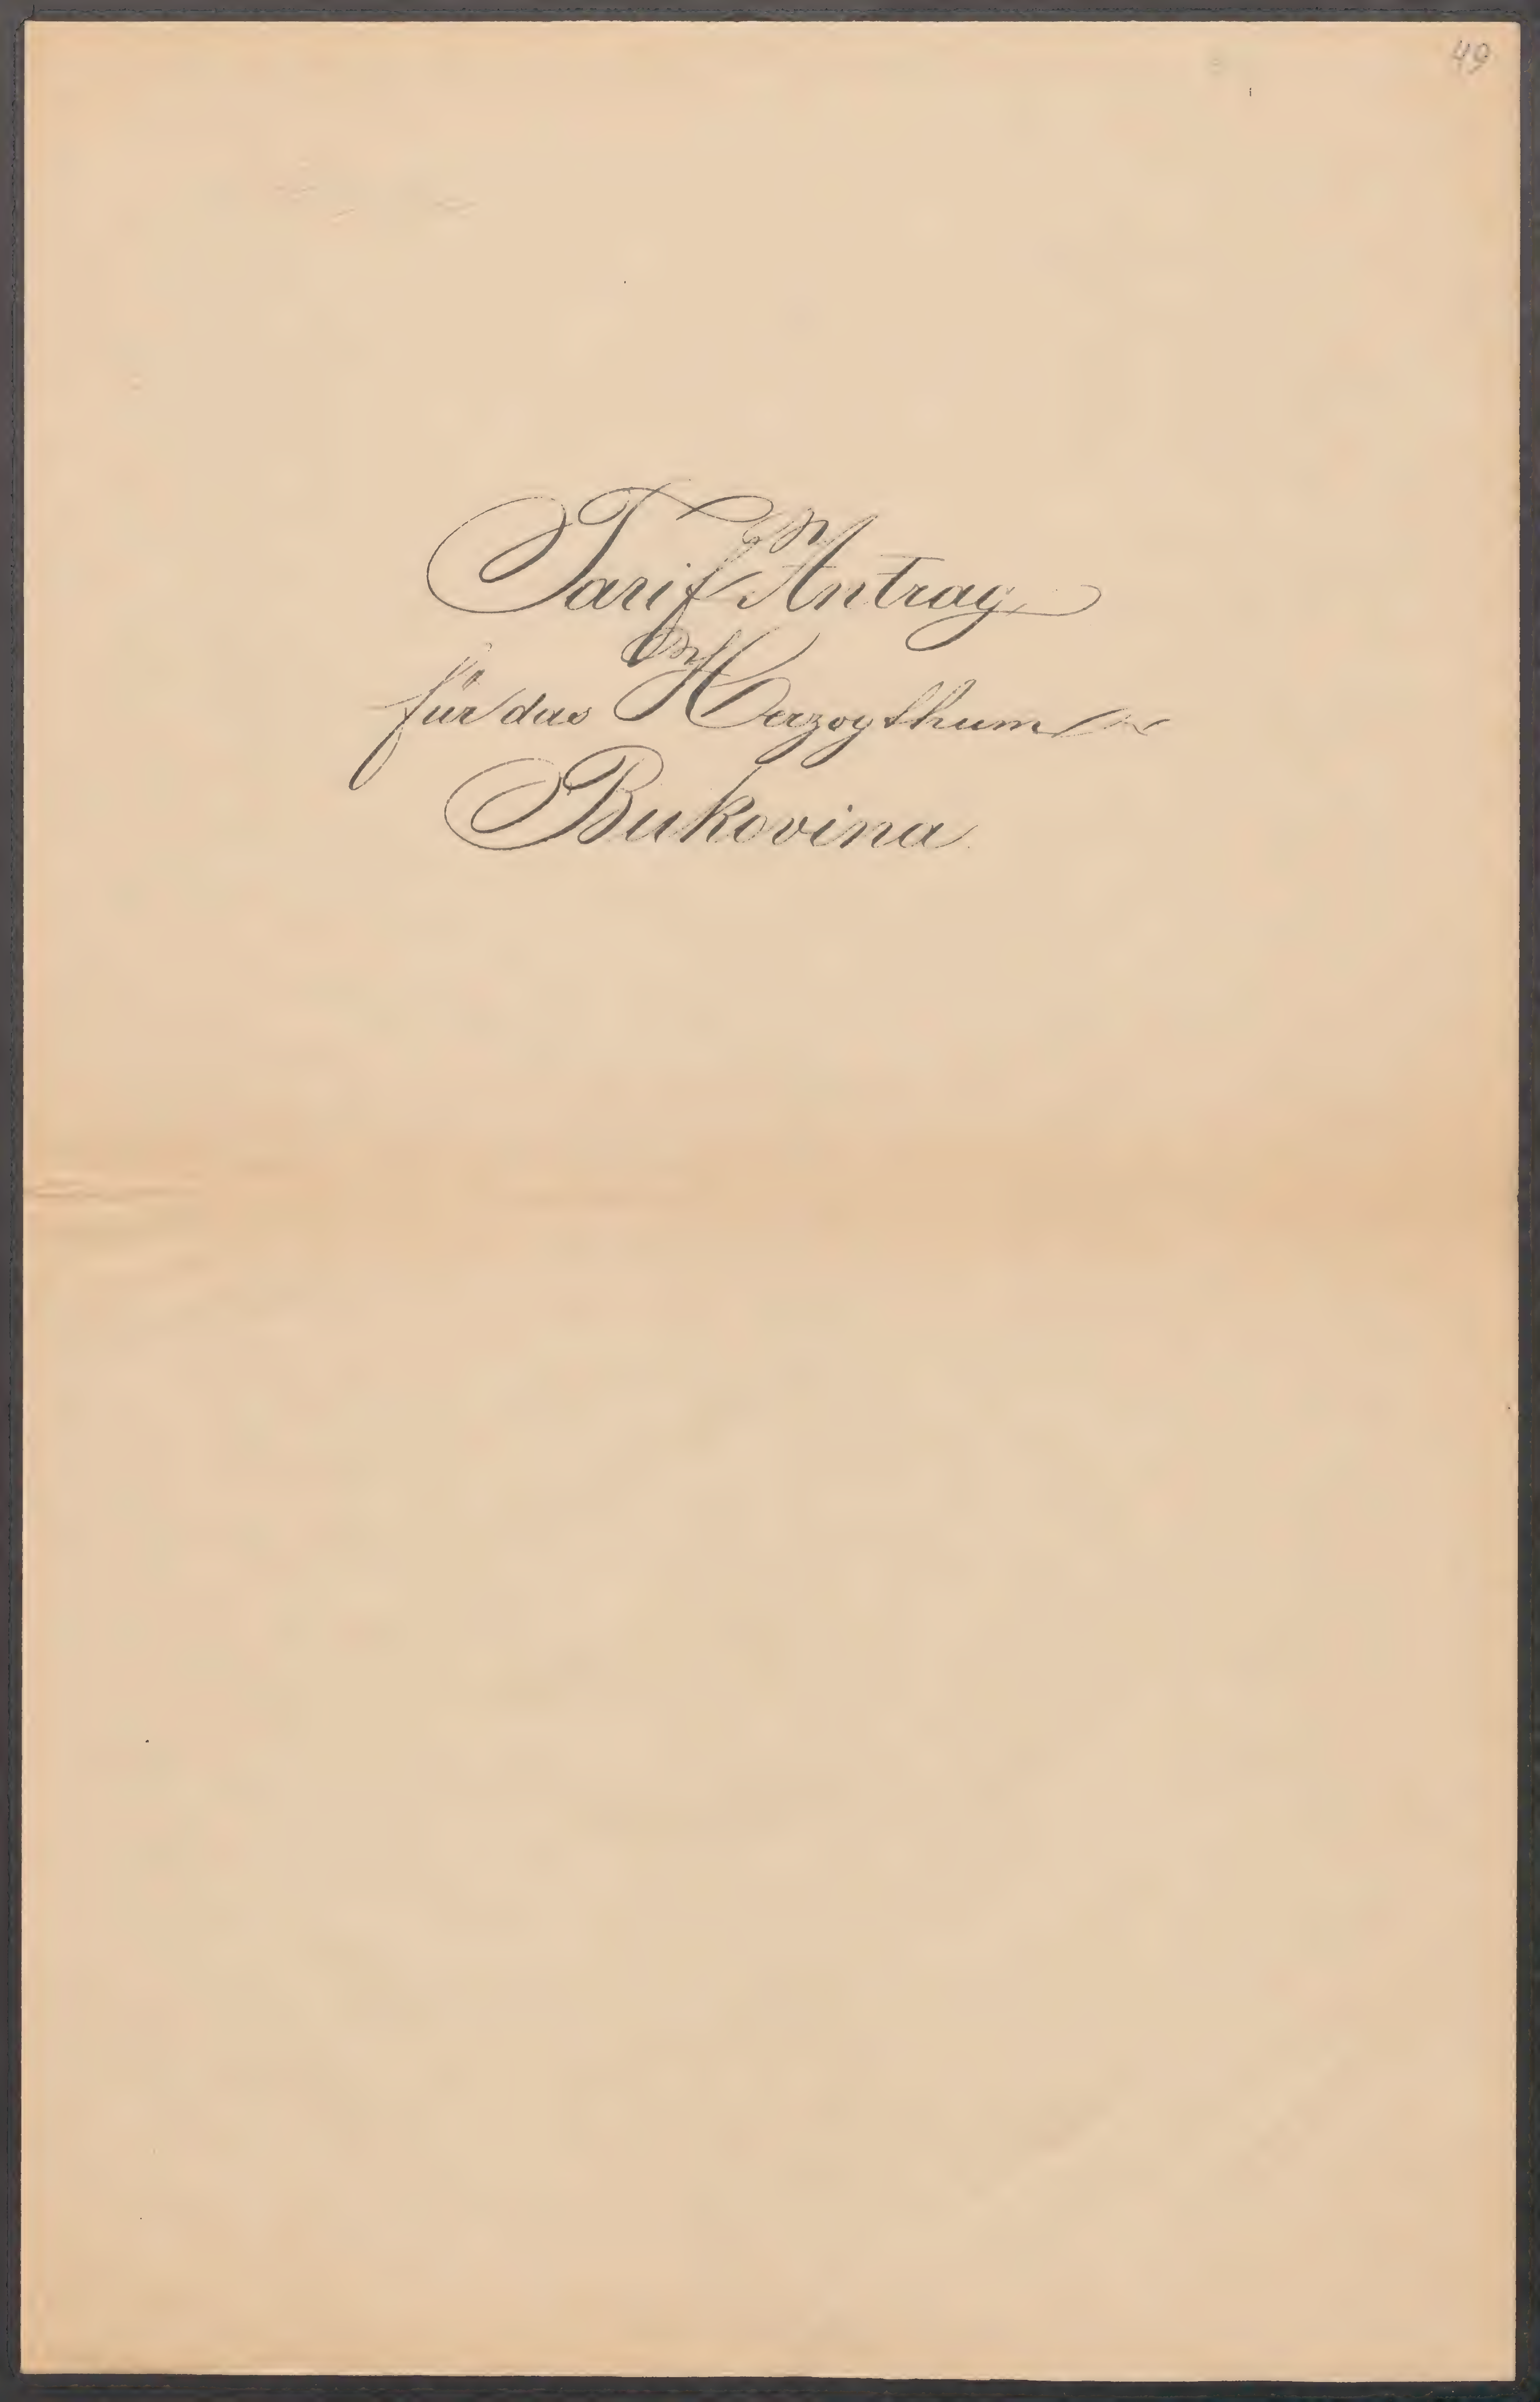 49
Tarif Antrag
für das Herzogthum
Bukovina